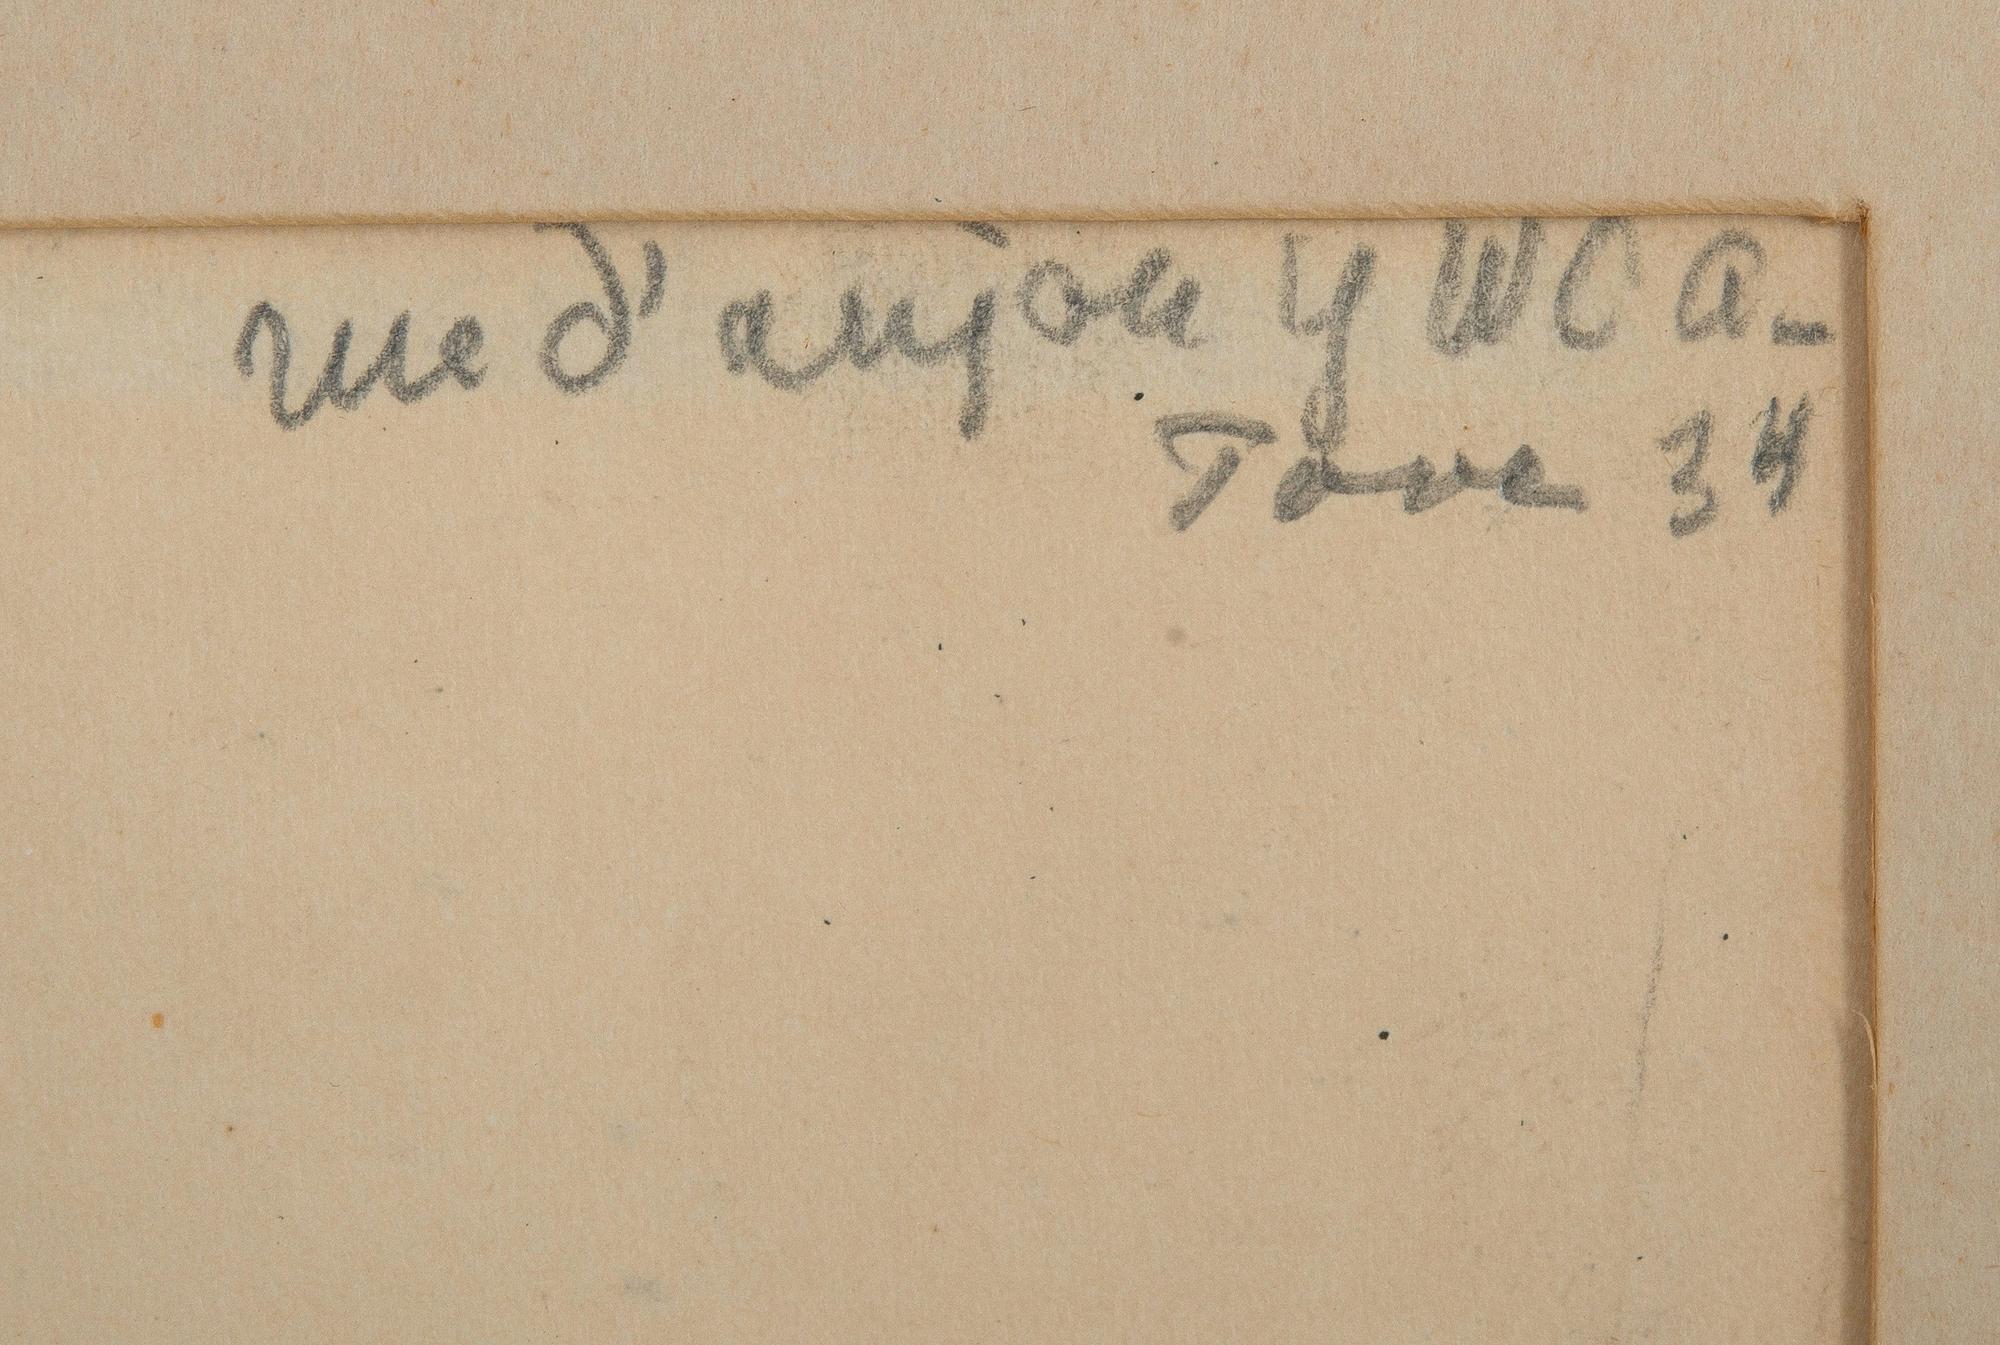 rue d'anjou YWCa-
Tove 34